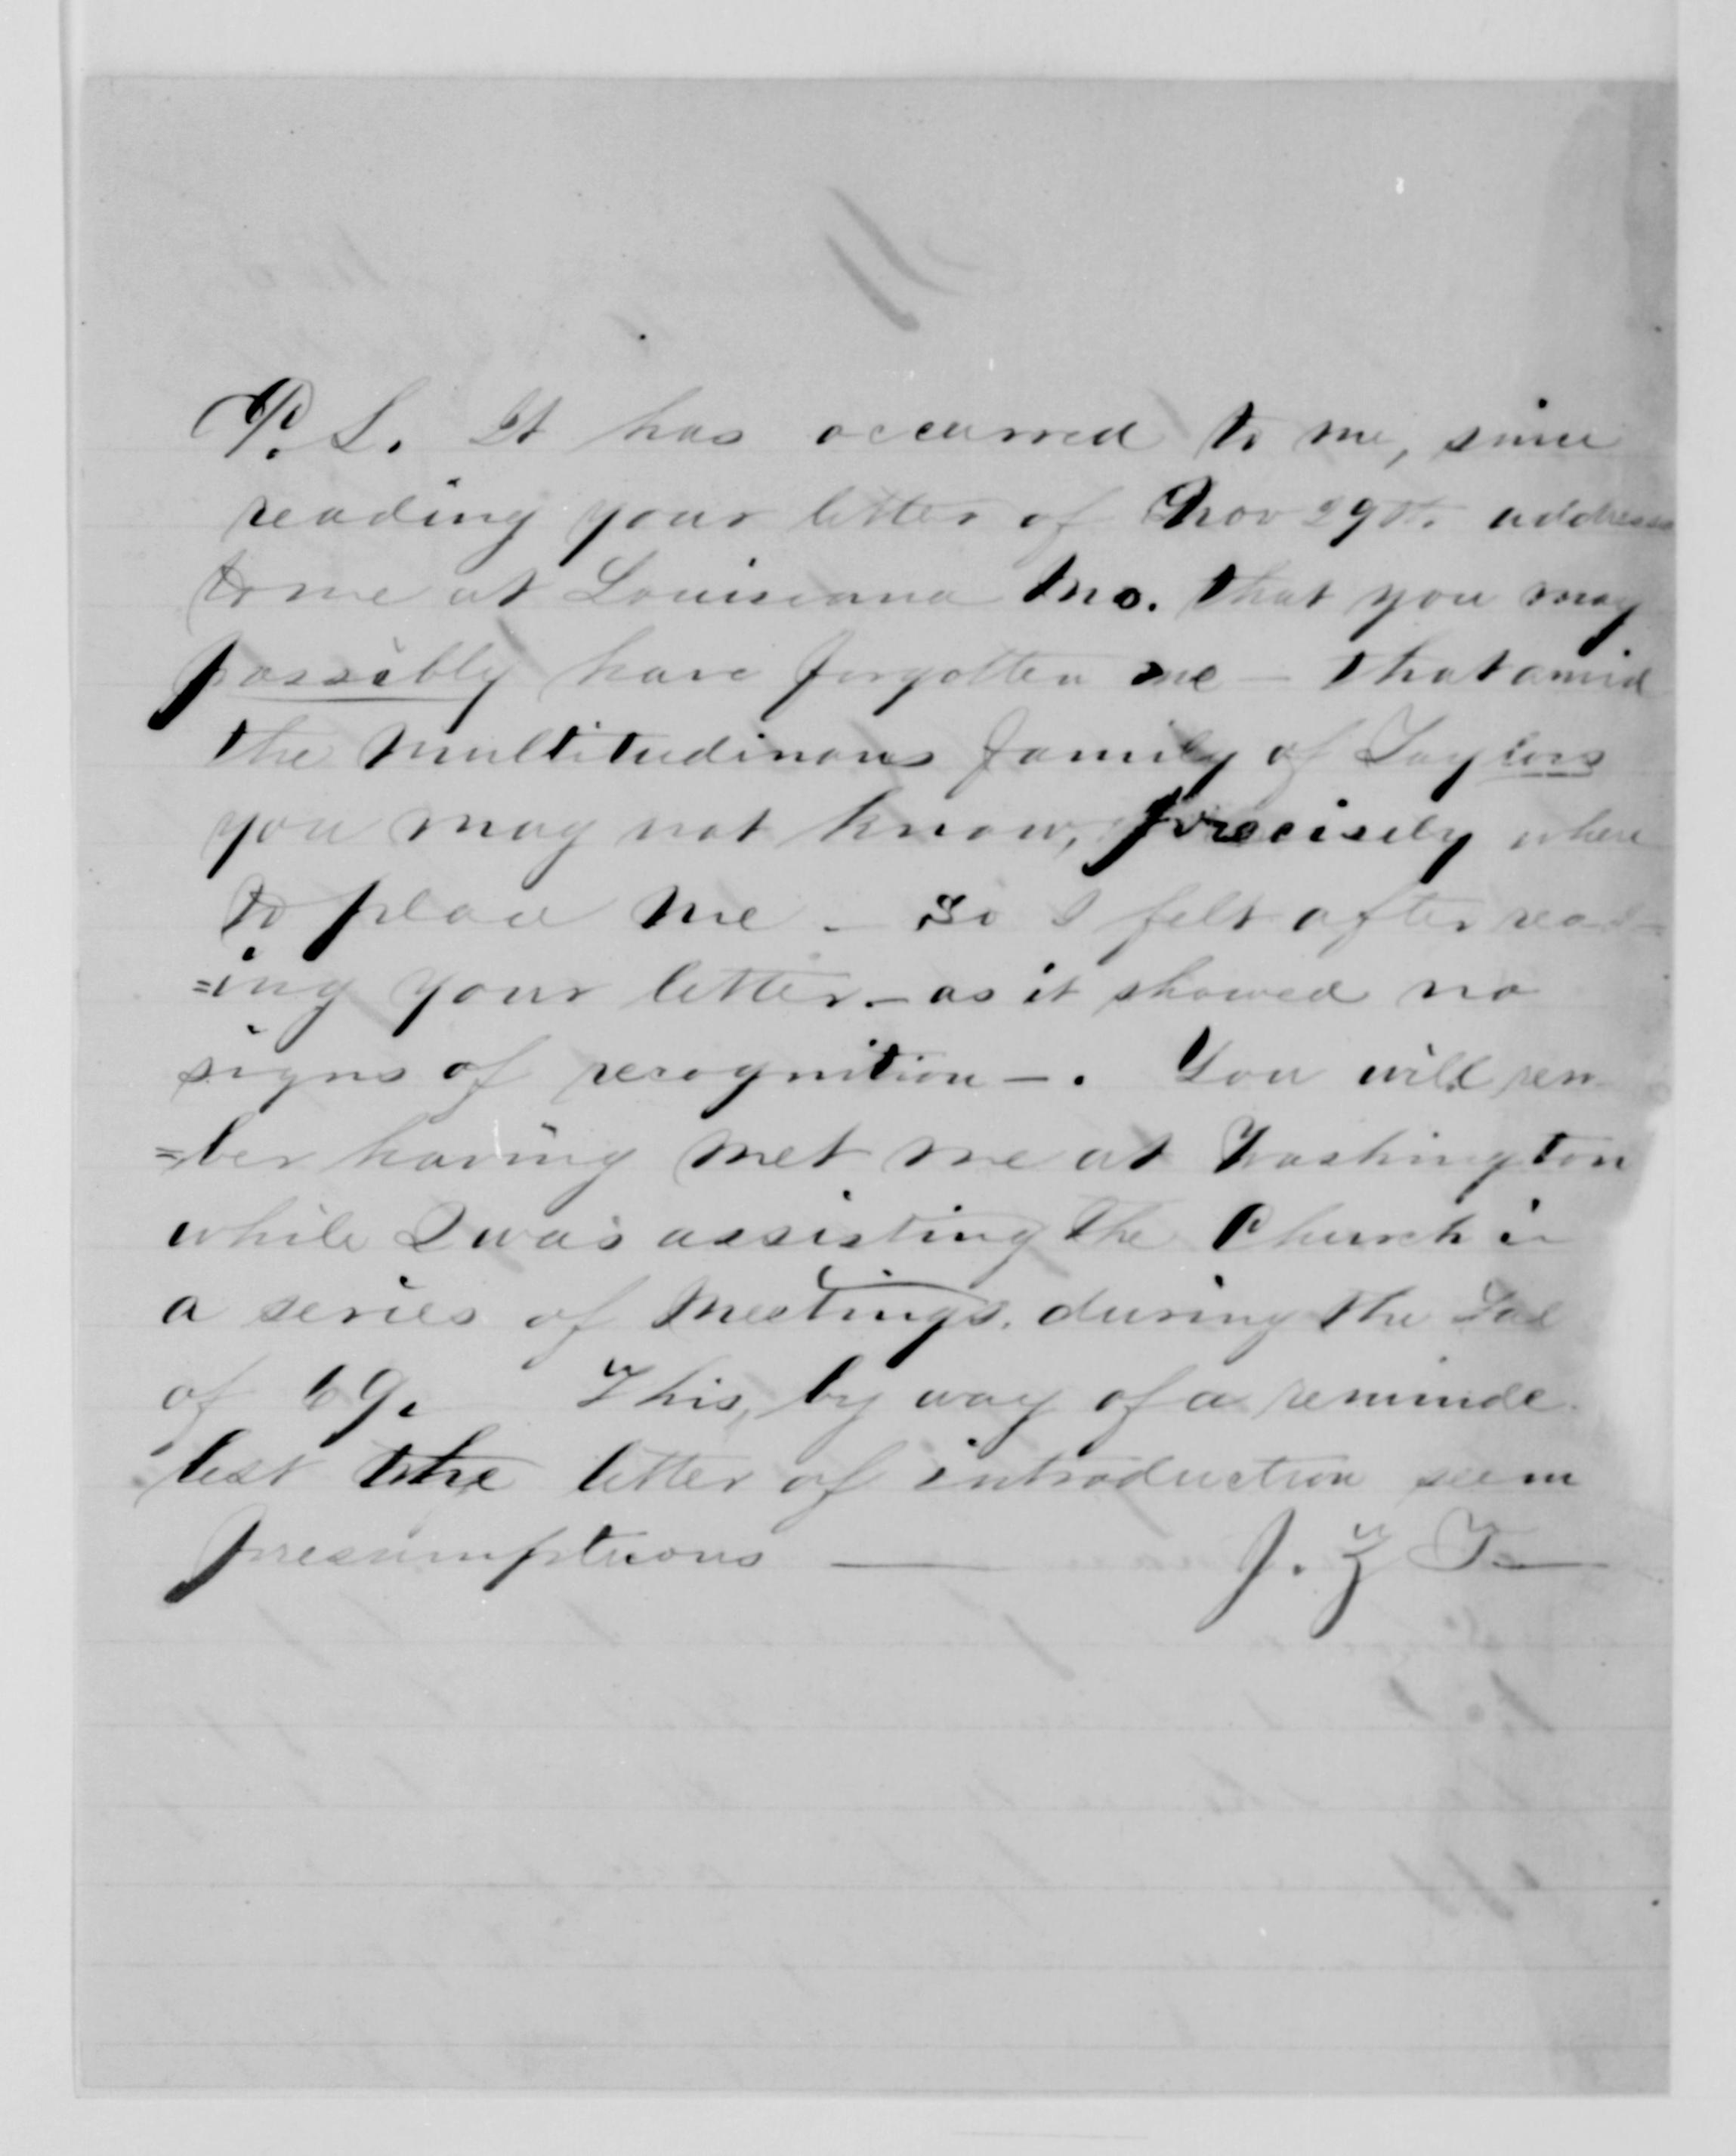 P.S. It has occurred to me, since
reading your letter of Nov 29th. address
to me at Louisiana Mo. that you may
possibly have forgotten me — that amid
the multitudinous family of Taylors
you may not know, precisely where
to place me — So I felt after read-
=ing your letter — as it showed no
signs of recognition —. You will rem
=ber having met me at Washington
while I was assisting the Church in
a series of meetings. during the
of 69. This, by way of a reminde
lest the letter of introduction seem
presumptuous — J. Z T—